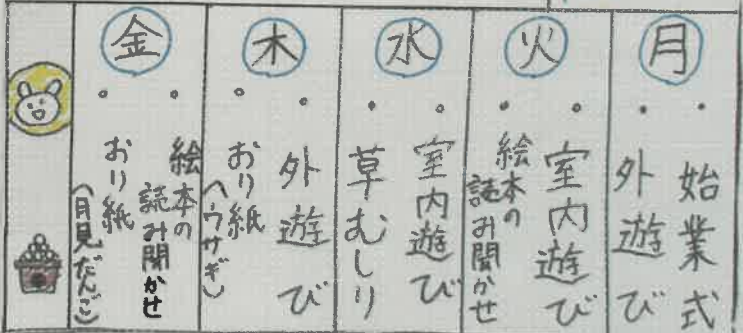 月
・始業式
・外遊び
火
・室内遊び
・絵本の
読み聞かせ
水
・室内遊び
・草むしり
木
・外遊び
・おり紙
(ウサギ)
金
・絵本の
読み聞かせ
・おり紙
(月見だんご)